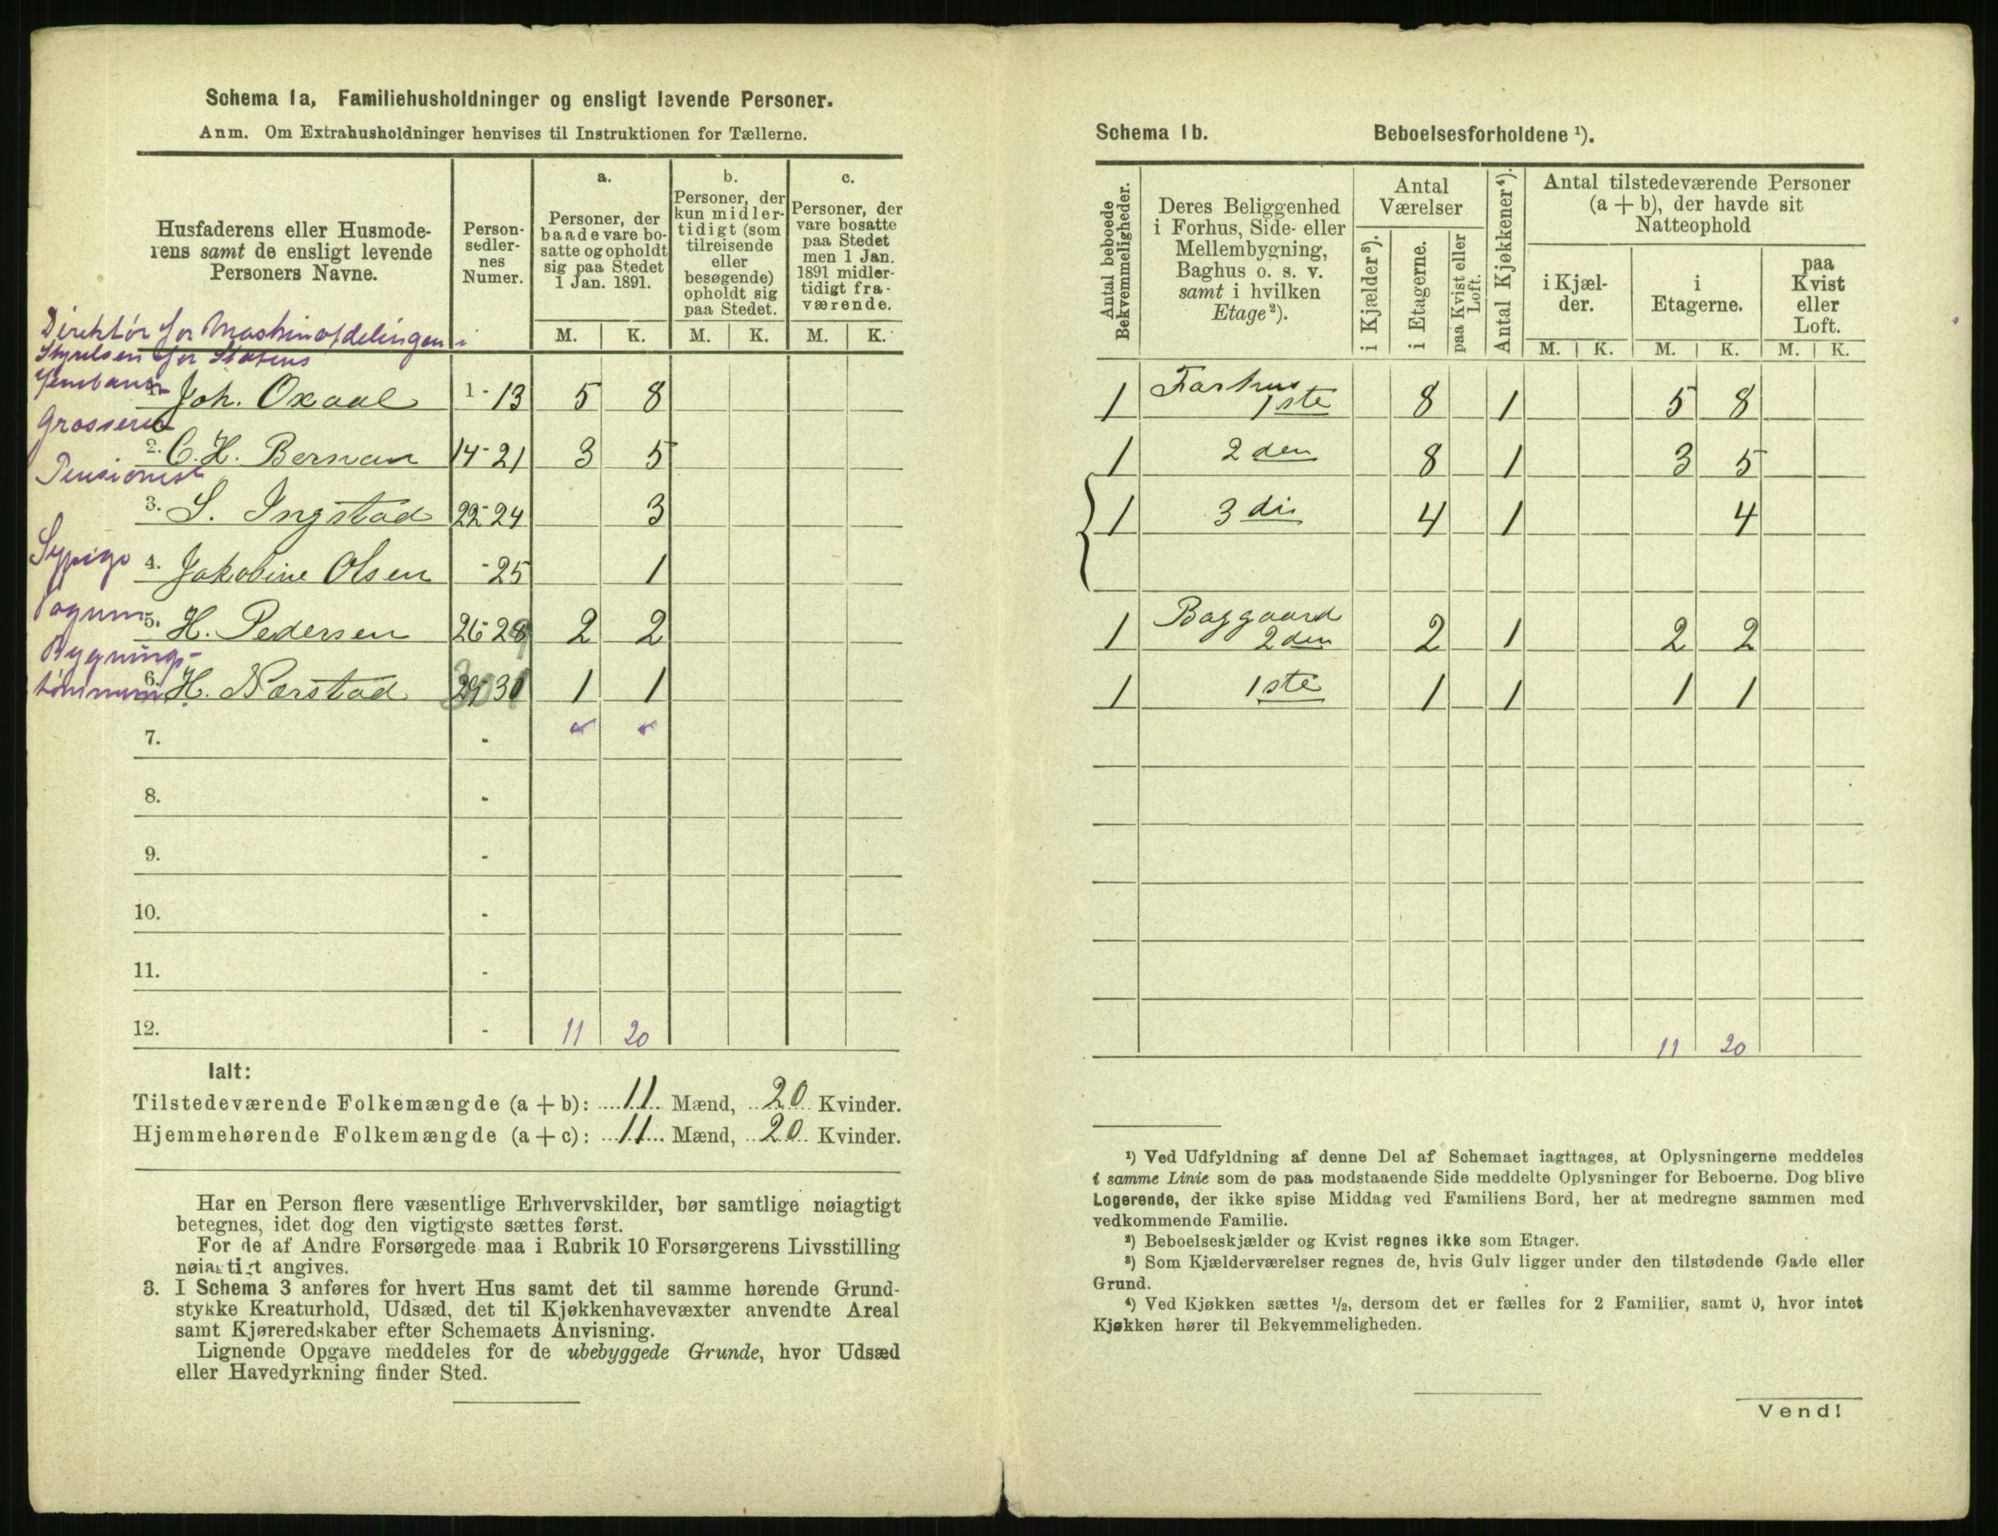 Schema 1a, Familiehusholdninger og ensligt levende Personer.
Anm. Om Extrahusholdninger henvises til Instruktionen for Tællerne.
Husfaderens eller Husmoderens samt de ensligt levende Personers Navne.
Personsedlernes Numer.
a.
Personer, der baade vare bosatte og opholdt sig paa Stedet 1 Jan. 1891.
b.
Personer, der kun midlertidigt (som tilreisende eller besøgende) opholdt sig paa Stedet.
c.
Personer, der vare bosatte paa Stedet men 1 Jan. 1891 midlertidigt fraværende.
M. K. M. K. M. K.
Direktør for Maskinafdelingen i
Styrelsen for Statens
Jernbaner
1. Joh. Oxaal 1-13 5 8
Grosserer
2. C. H. Bernan 14-21 3 5
Pensionist
3. S. Ingstad 22-24 3
Sypige
4. Jakobine Olsen -25 1
5. H. Pedersen 26-29 2 2
Bygnings-
6. H. Narstad 30-31 1 1
7. -
8. -
9. -
10. -
11. -
12. - 11 20
Ialt:
Tilstedeværende Folkemængde (a + b): 11 Mænd, 20 Kvinder.
Hjemmehørende Folkemængde (a + c): 11 Mænd, 20 Kvinder.
Har en Person flere væsentlige Erhvervskilder, bør samtlige nøiagtigt
betegnes, idet dog den vigtigste sættes først.
For de af Andre Forsørgede maa i Rubrik 10 Forsørgerens Livsstilling
nøiagtigt angives.
3. I Schema 3 anføres for hvert Hus samt det til samme hørende Grund-
stykke Kreaturhold, Udsæd, det til Kjøkkenhavevæxter anvendte Areal
samt Kjøreredskaber efter Schemaets Anvisning.
Lignende Opgave meddeles for de ubebyggede Grunde, hvor Udsæd
eller Havedyrkning finder Sted.
Schema 1b. Beboelsesforholdene ¹).
Antal beboede Bekvemmeligheder.
Deres Beliggenhed i Forhus, Side- eller Mellembygning, Baghus o. s. v. samt i hvilken Etage²).
Antal Værelser
i Kjælder³).
i Etagerne.
paa Kvist eller Loft.
Antal Kjøkkener⁴).
Antal tilstedeværende Personer (a + b), der havde sit Natteophold
i Kjælder.
i Etagerne.
paa Kvist eller Loft.
M. K. M. K. M. K.
1 Forhus 1ste 8 1 5 8
1 2den 8 1 3 5
1 3die 4 1 4
1 Baggaard 2den 2 1 2 2
1 1ste 1 1 1 1
11 20
¹) Ved Udfyldning af denne Del af Schemaet iagttages, at Oplysningerne meddeles
i samme Linie som de paa modstaaende Side meddelte Oplysninger for Beboerne. Dog blive
Logerende, der ikke spise Middag ved Familiens Bord, her at medregne sammen med
vedkommende Familie.
²) Beboelseskjælder og Kvist regnes ikke som Etager.
³) Som Kjælderværelser regnes de, hvis Gulv ligger under den tilstødende Gade eller
Grund.
⁴) Ved Kjøkken sættes ¹/₂, dersom det er fælles for 2 Familier, samt 0, hvor intet
Kjøkken hører til Bekvemmeligheden.
Vend!